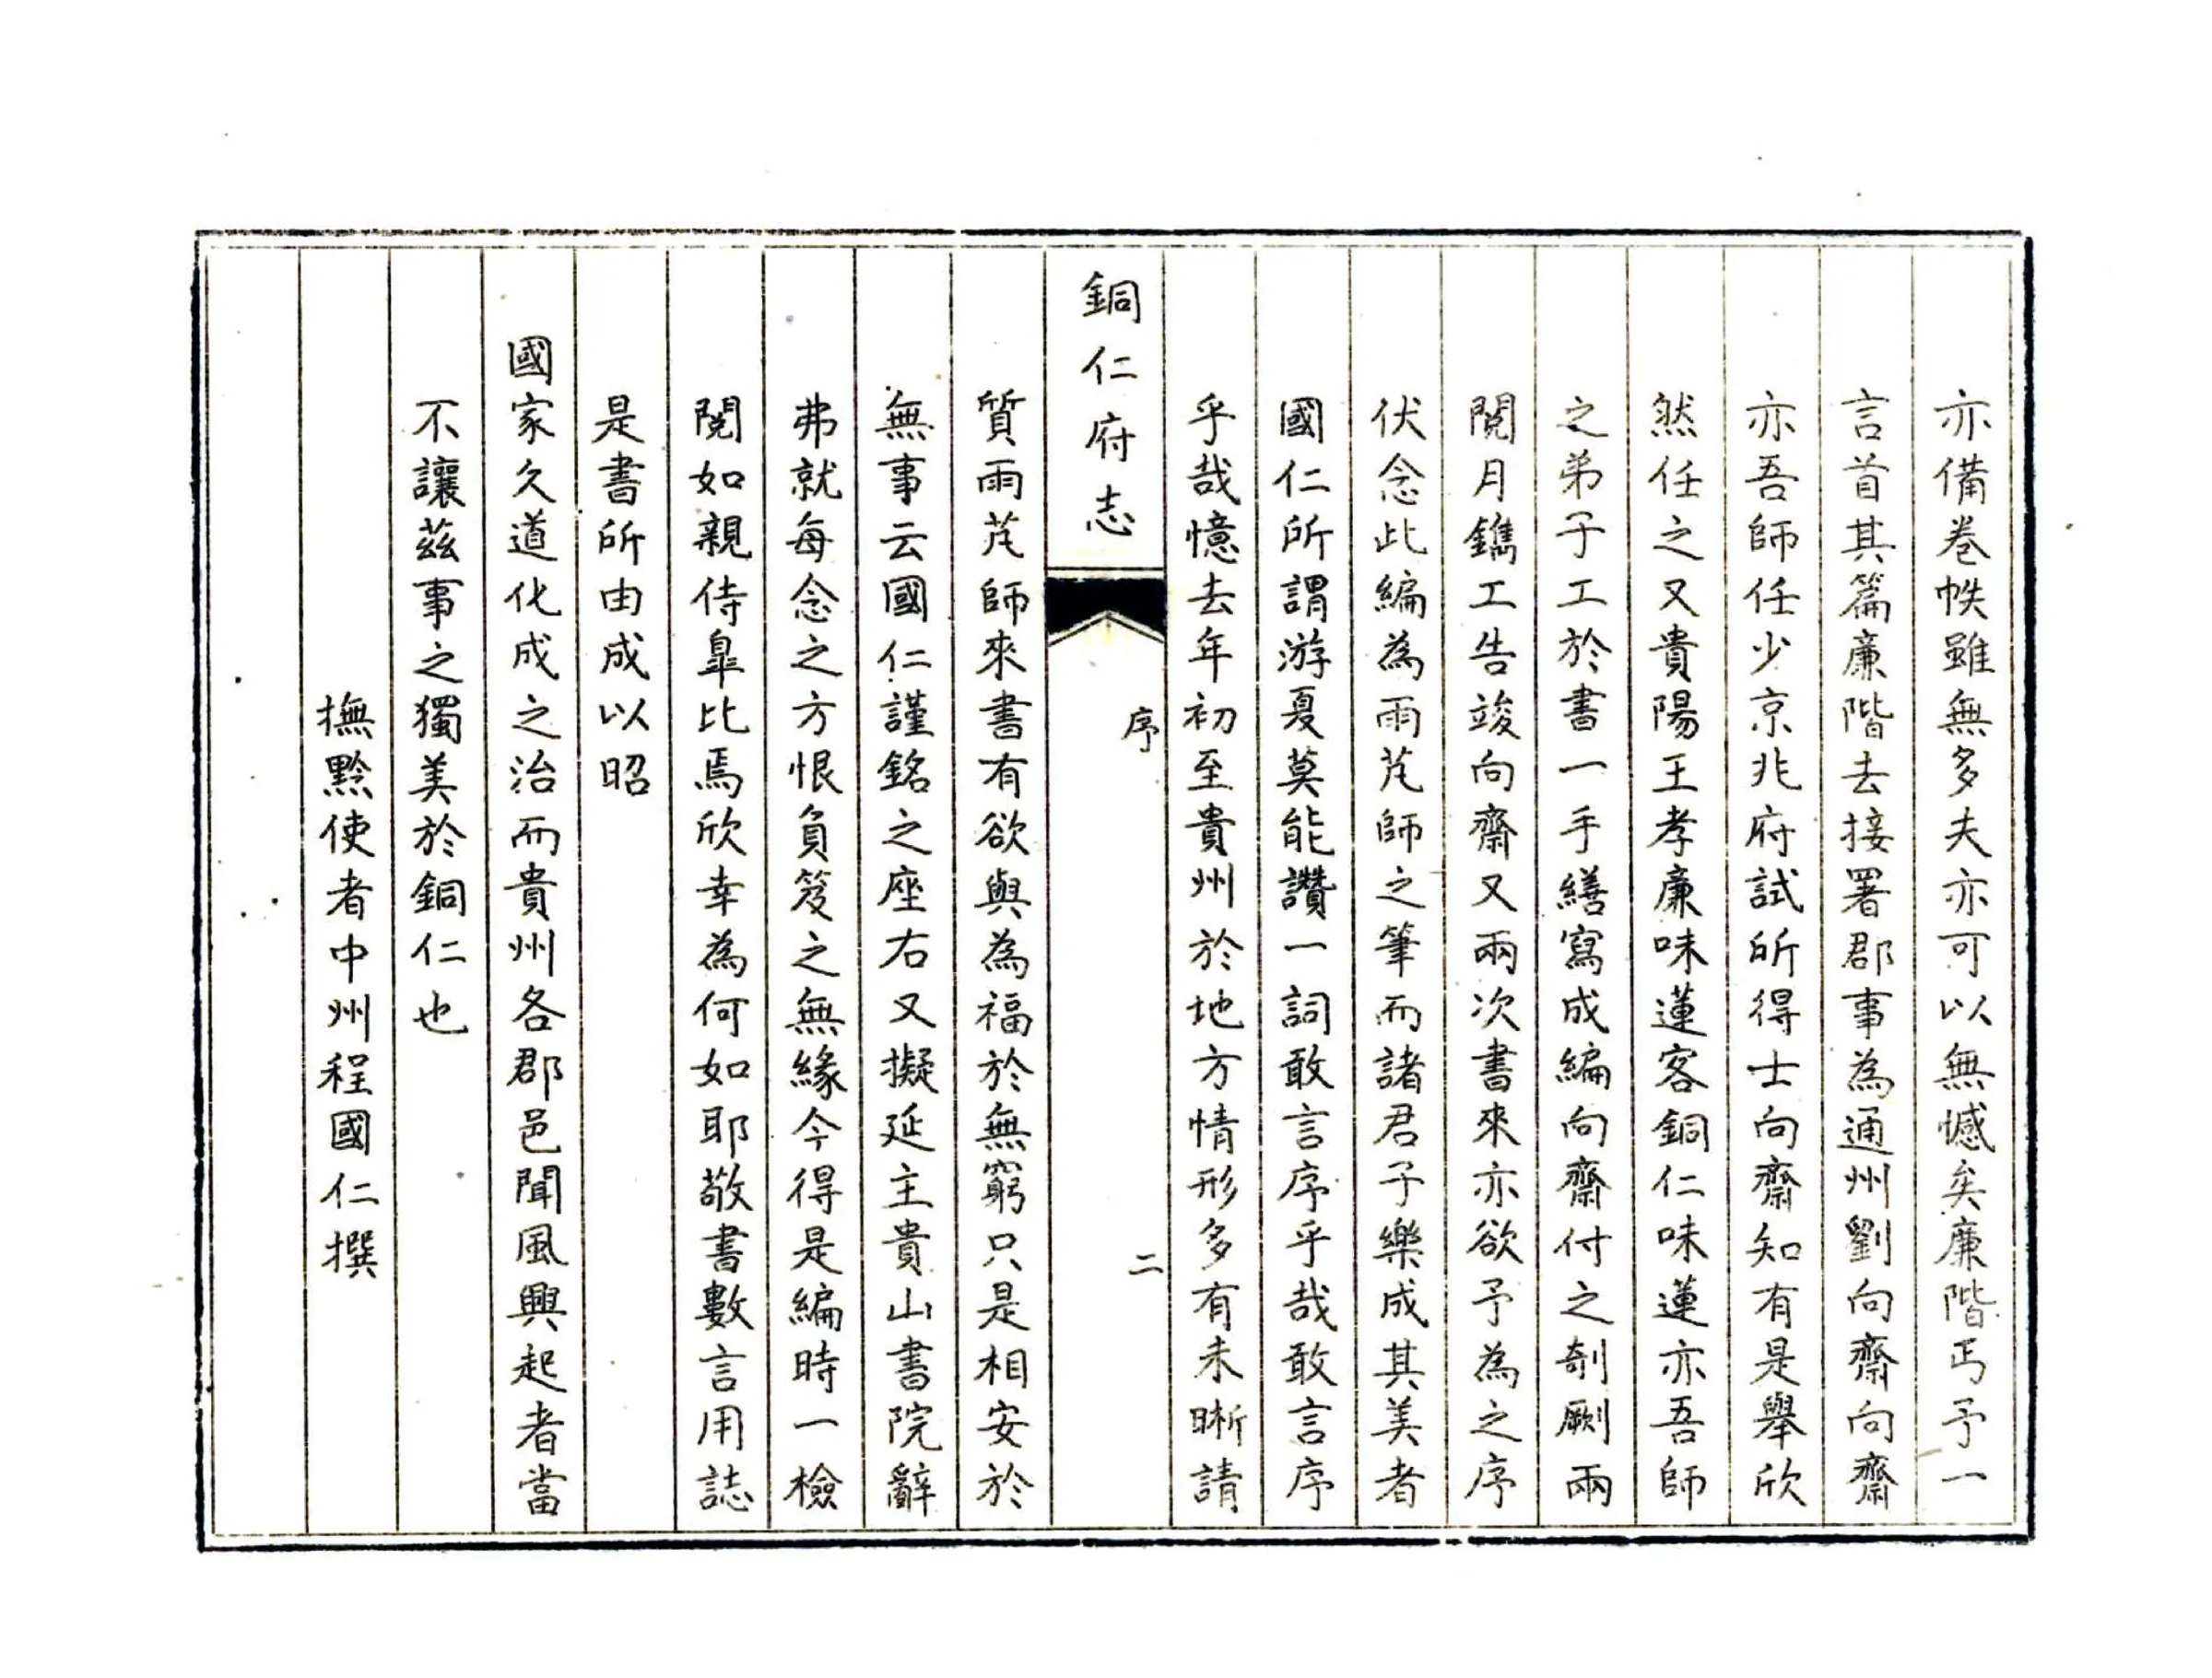 亦備卷帙雖無多夫亦可以無憾矣廉階丐予一
言首其篇廉階去接署郡事為通州劉向齋向齋
亦吾師任少京兆府試所得士向齋知有是舉欣
然任之又貴陽王孝廉味蓮客銅仁味蓮亦吾師
之弟子工於書一手繕寫成編向齋付之剞劂兩
閱月鐫工告竣向齋又兩次書來亦欲予為之序
伏念此編為雨芃師之筆而諸君子樂成其美者
國仁所謂游夏莫能讚一詞敢言序乎哉敢言序
乎哉憶去年初至貴州於地方情形多有未晰請
銅仁府志
序
二
質雨芃師來書有欲與為福於無窮只是相安於
無事云國仁謹銘之座右又擬延主貴山書院辭
弗就每念之方恨負笈之無緣今得是編時一檢
閱如親侍臯比焉欣幸為何如耶敬書數言用誌
是書所由成以昭
國家久道化成之治而貴州各郡邑聞風興起者當
不讓茲事之獨美於銅仁也
撫黔使者中州程國仁撰